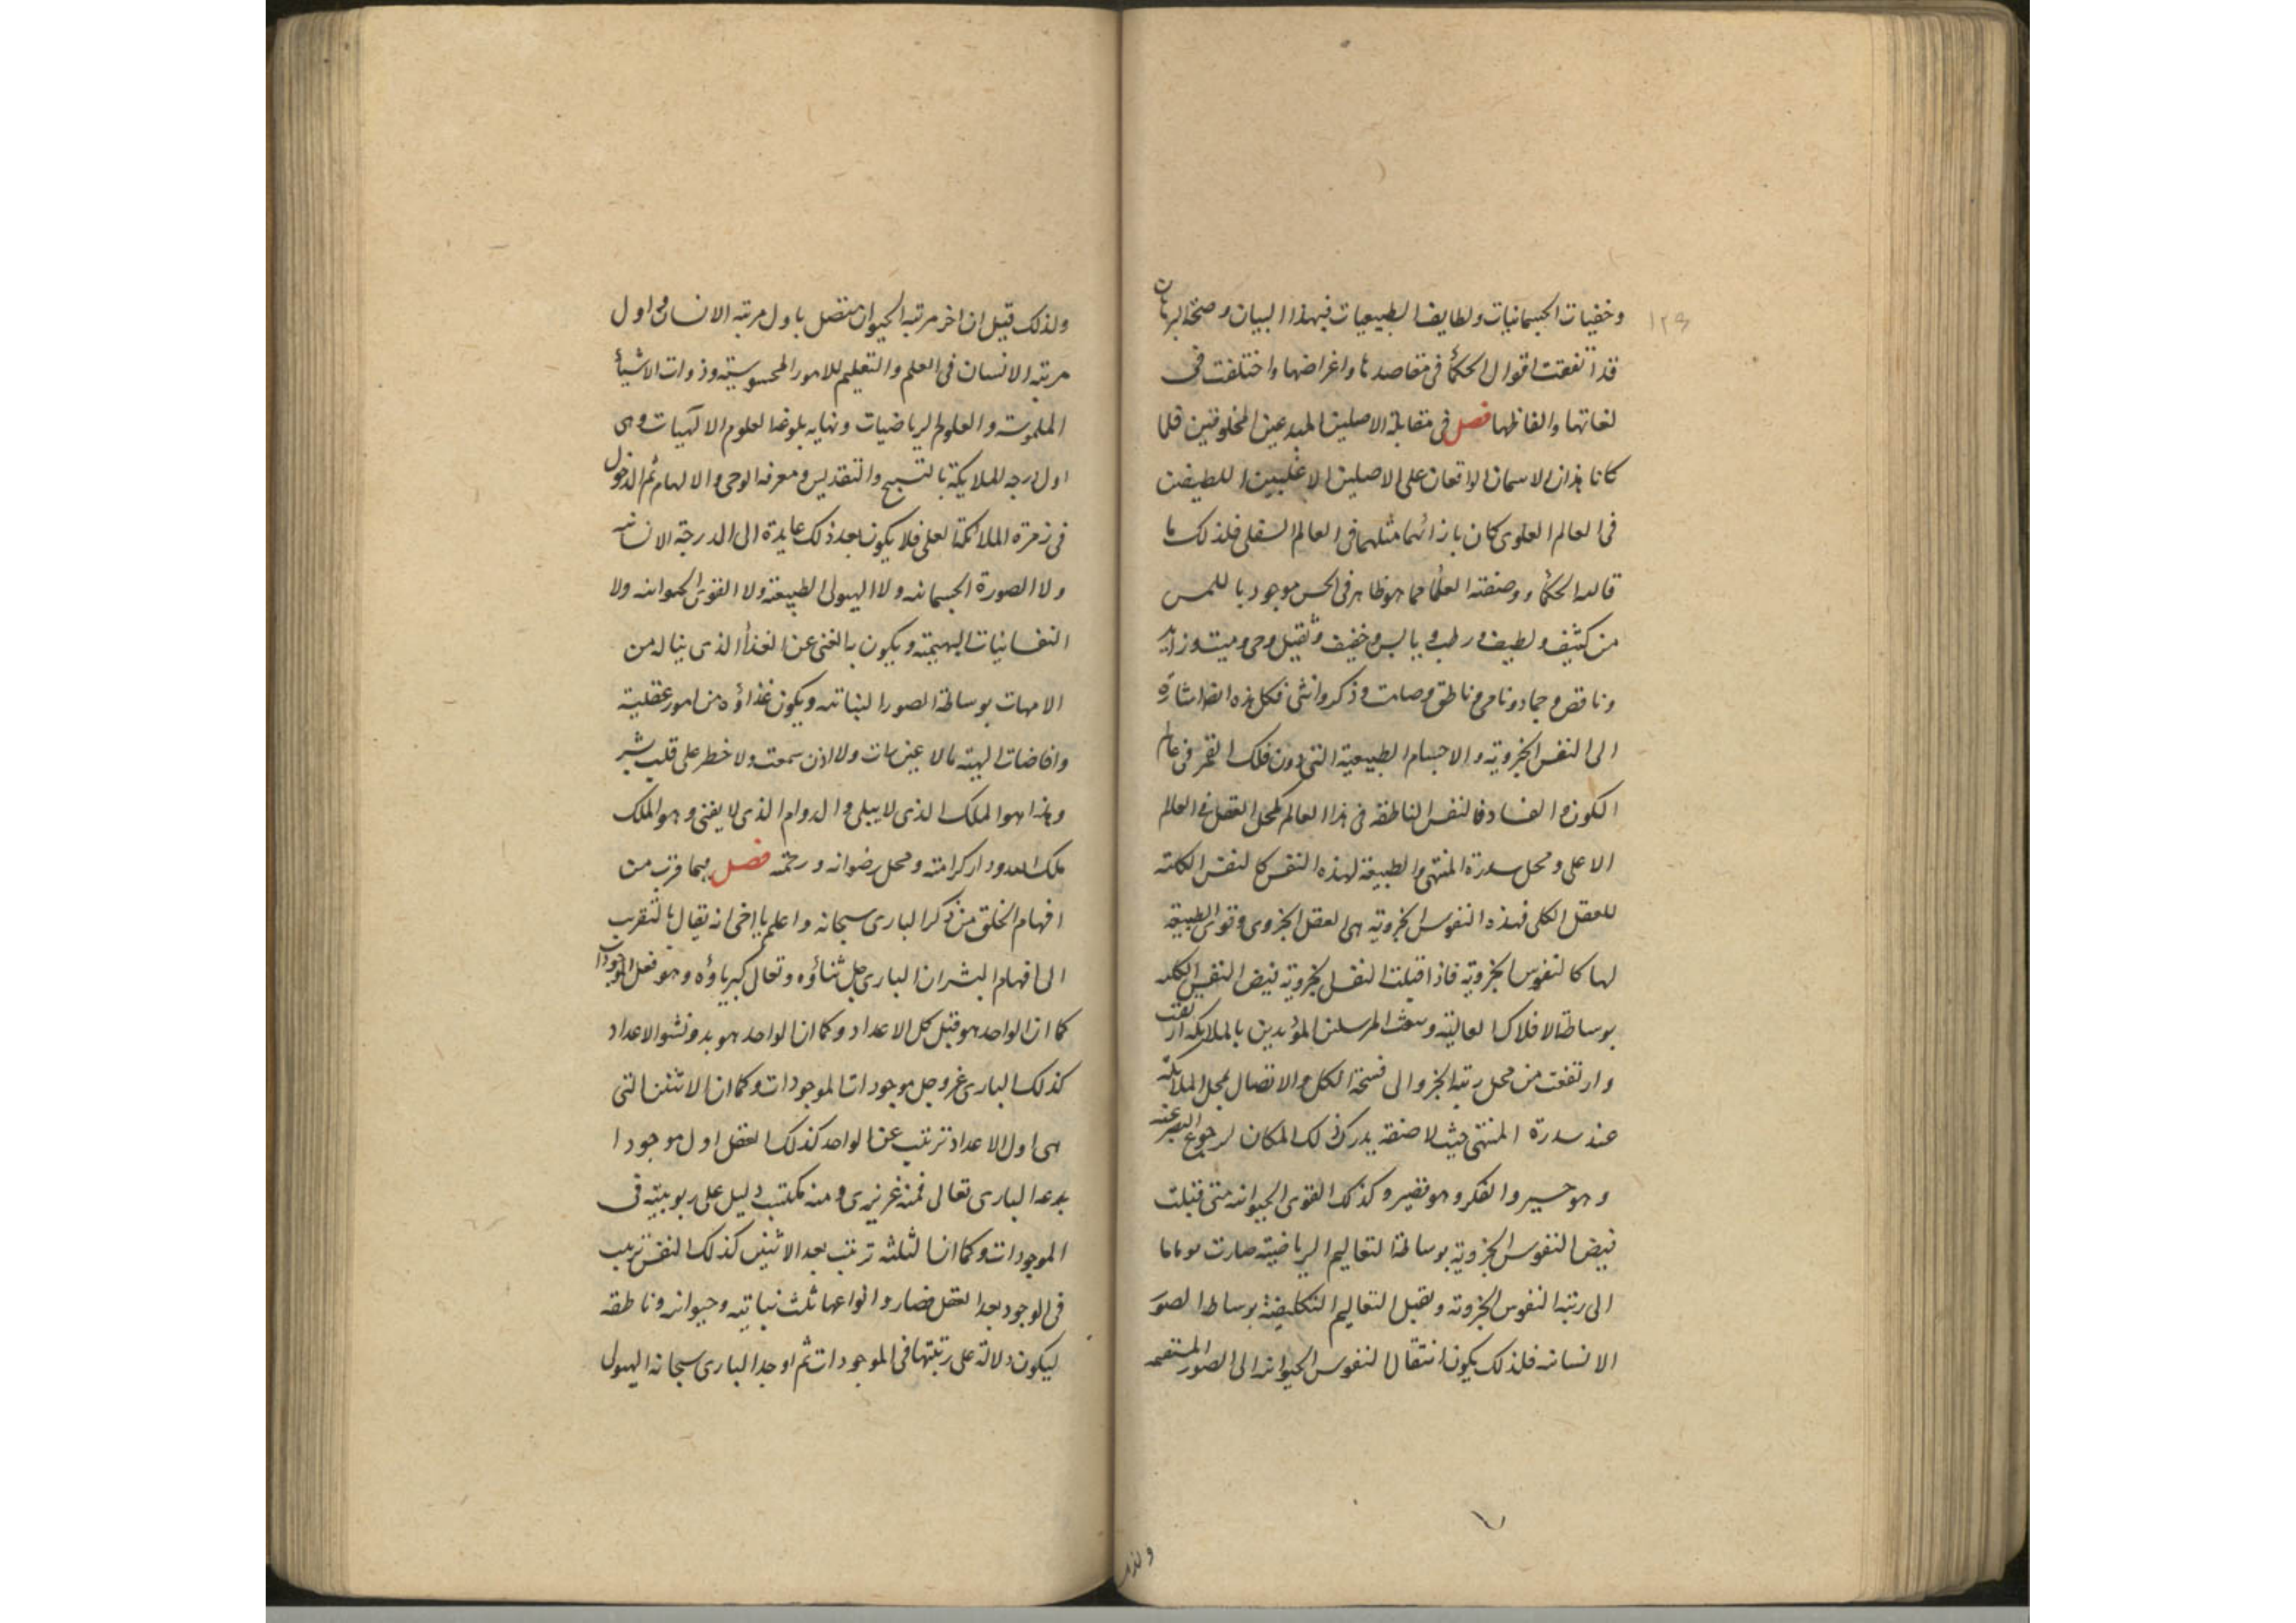 ١٢٩
وخفيات الجسمانيات ولطايف الطبيعيات فبهذا البيان وصحة البرهان
قد اتفقت اقوال الحكمأ فى مقاصدنا واغراضها واختلفت فى
لغاتها والفاظها فصل فى مقابلة الاصلين المبدعين المخلوقين فلما
كانا هذان الاسمان الواقعان على الاصلين الاغلبين اللطيفين
فى العالم العلوى كان بازائهما مثلهما فى العالم السفلى فلذلك ما
قالته الحكمأ ووصفته العلمأ مما هو ظاهر فى الحس موجود باللمس
من كثيف ولطيف ورطب ويابس وخفيف وثقيل وحى وميت وزايد
وناقص وجماد ونامى وناطق وصامت وذكر وانثى فكل هذه ايضا اشارة
الى النفس الجزوية والاجسام الطبيعية التى دون فلك القمر فى عالم
الكون والفساد فالنفس الناطقه فى هذا العالم كمحل العقل فى العالم
الاعلى ومحل سدرة المنتهى والطبيعة لهذه النفس كالنفس الكلية
للعقل الكلى فهذه النفوس الجزوية هى العقل الجزوى وقوى الطبيعة
لها كالنفوس الجزوية فاذا قبلت النفس الجزوية فيض النفس الكليه
بوساطة الافلاك العالية وبعث المرسلين المؤيدين بالملايكه ارتقت
وارتفعت من محل رتبة الجزو الى فسحة الكل والاتصال بمحل الملايكه
عند سدرة المنتهى حيث لا صفة يدرك ذلك المكان لرجوع البصر عنه
وهو حسير والفكر وهو قصير وكذلك القوى الحيوانيه متى قبلت
فيض النفوس الجزوية بوساطة التعاليم الرياضية صارت
الى رتبة النفوس الجزوية وتقبل التعاليم التكليفية بوساطة الصور
الانسانيه فلذلك يكون انتقال النفوس الحيوانيه الى الصور المستقيمه
ولذلك
ولذلك قيل ان اخر مرتبة الحيوان متصل باول مرتبه الانسان واول
مرتبة الانسان فى العلم والتعليم للامور المحسوسية وذوات الاشيأ
الملموسة والعلوم الرياضيات ونهايه بلوغه العلوم الالهيات وهى
اول درجه الملايكة بالتسبيح والتقديس ومعرفه الوحى والالهام ثم الدخول
فى زمرة الملائكة العلى فلا يكون بعد ذلك عايدة الى الدرجة الانسانيه
ولا الصورة الجسمانيه ولا الهيولى الطبيعية ولا القوى الحيوانيه ولا
النفسانيات البهيمية ويكون بالغنى عن الغذأ الذى يناله من
الامهات بوساطة الصور النباتيه ويكون غذاؤه من امور عقلية
وافاضات الهية ما لا عين رات ولا اذن سمعت ولا خطر على قلب بشر
وهذا هو الملك الذى لا يبلى والدوام الذى لا يفنى وهو الملك
ملك الله ودار كرامته ومحل رضوانه ورحمته فصل مما قرب من
افهام الخلق من ذكر البارى سبحانه واعلم يا اخى انه يقال بالتقريب
الى افهام البشر ان البارى جل ثناؤه وتعالى كبرياؤه وهو فعل الموجودات
كما ان الواحد هو قبل كل الاعداد وكما ان الواحد هو بدو نشو الاعداد
كذلك البارى عز وجل موجود ات الموجودات وكما ان الاثنين التى
هى اول الاعداد ترتبت عن الواحد كذلك العقل اول موجود ا
بدعه البارى تعالى فمنه غريزى ومنه مكتسب دليل على ربوبيته فى
الموجودات وكما ان الثلثه ترتبت بعد الاثنين كذلك النفس ترتبت
فى الوجود بعد العقل فصار وانواعها ثلث نباتيه وحيوانيه وناطقه
ليكون دلالة على رتبتها فى الموجودات ثم اوجد البارى سبحانه الهيولى